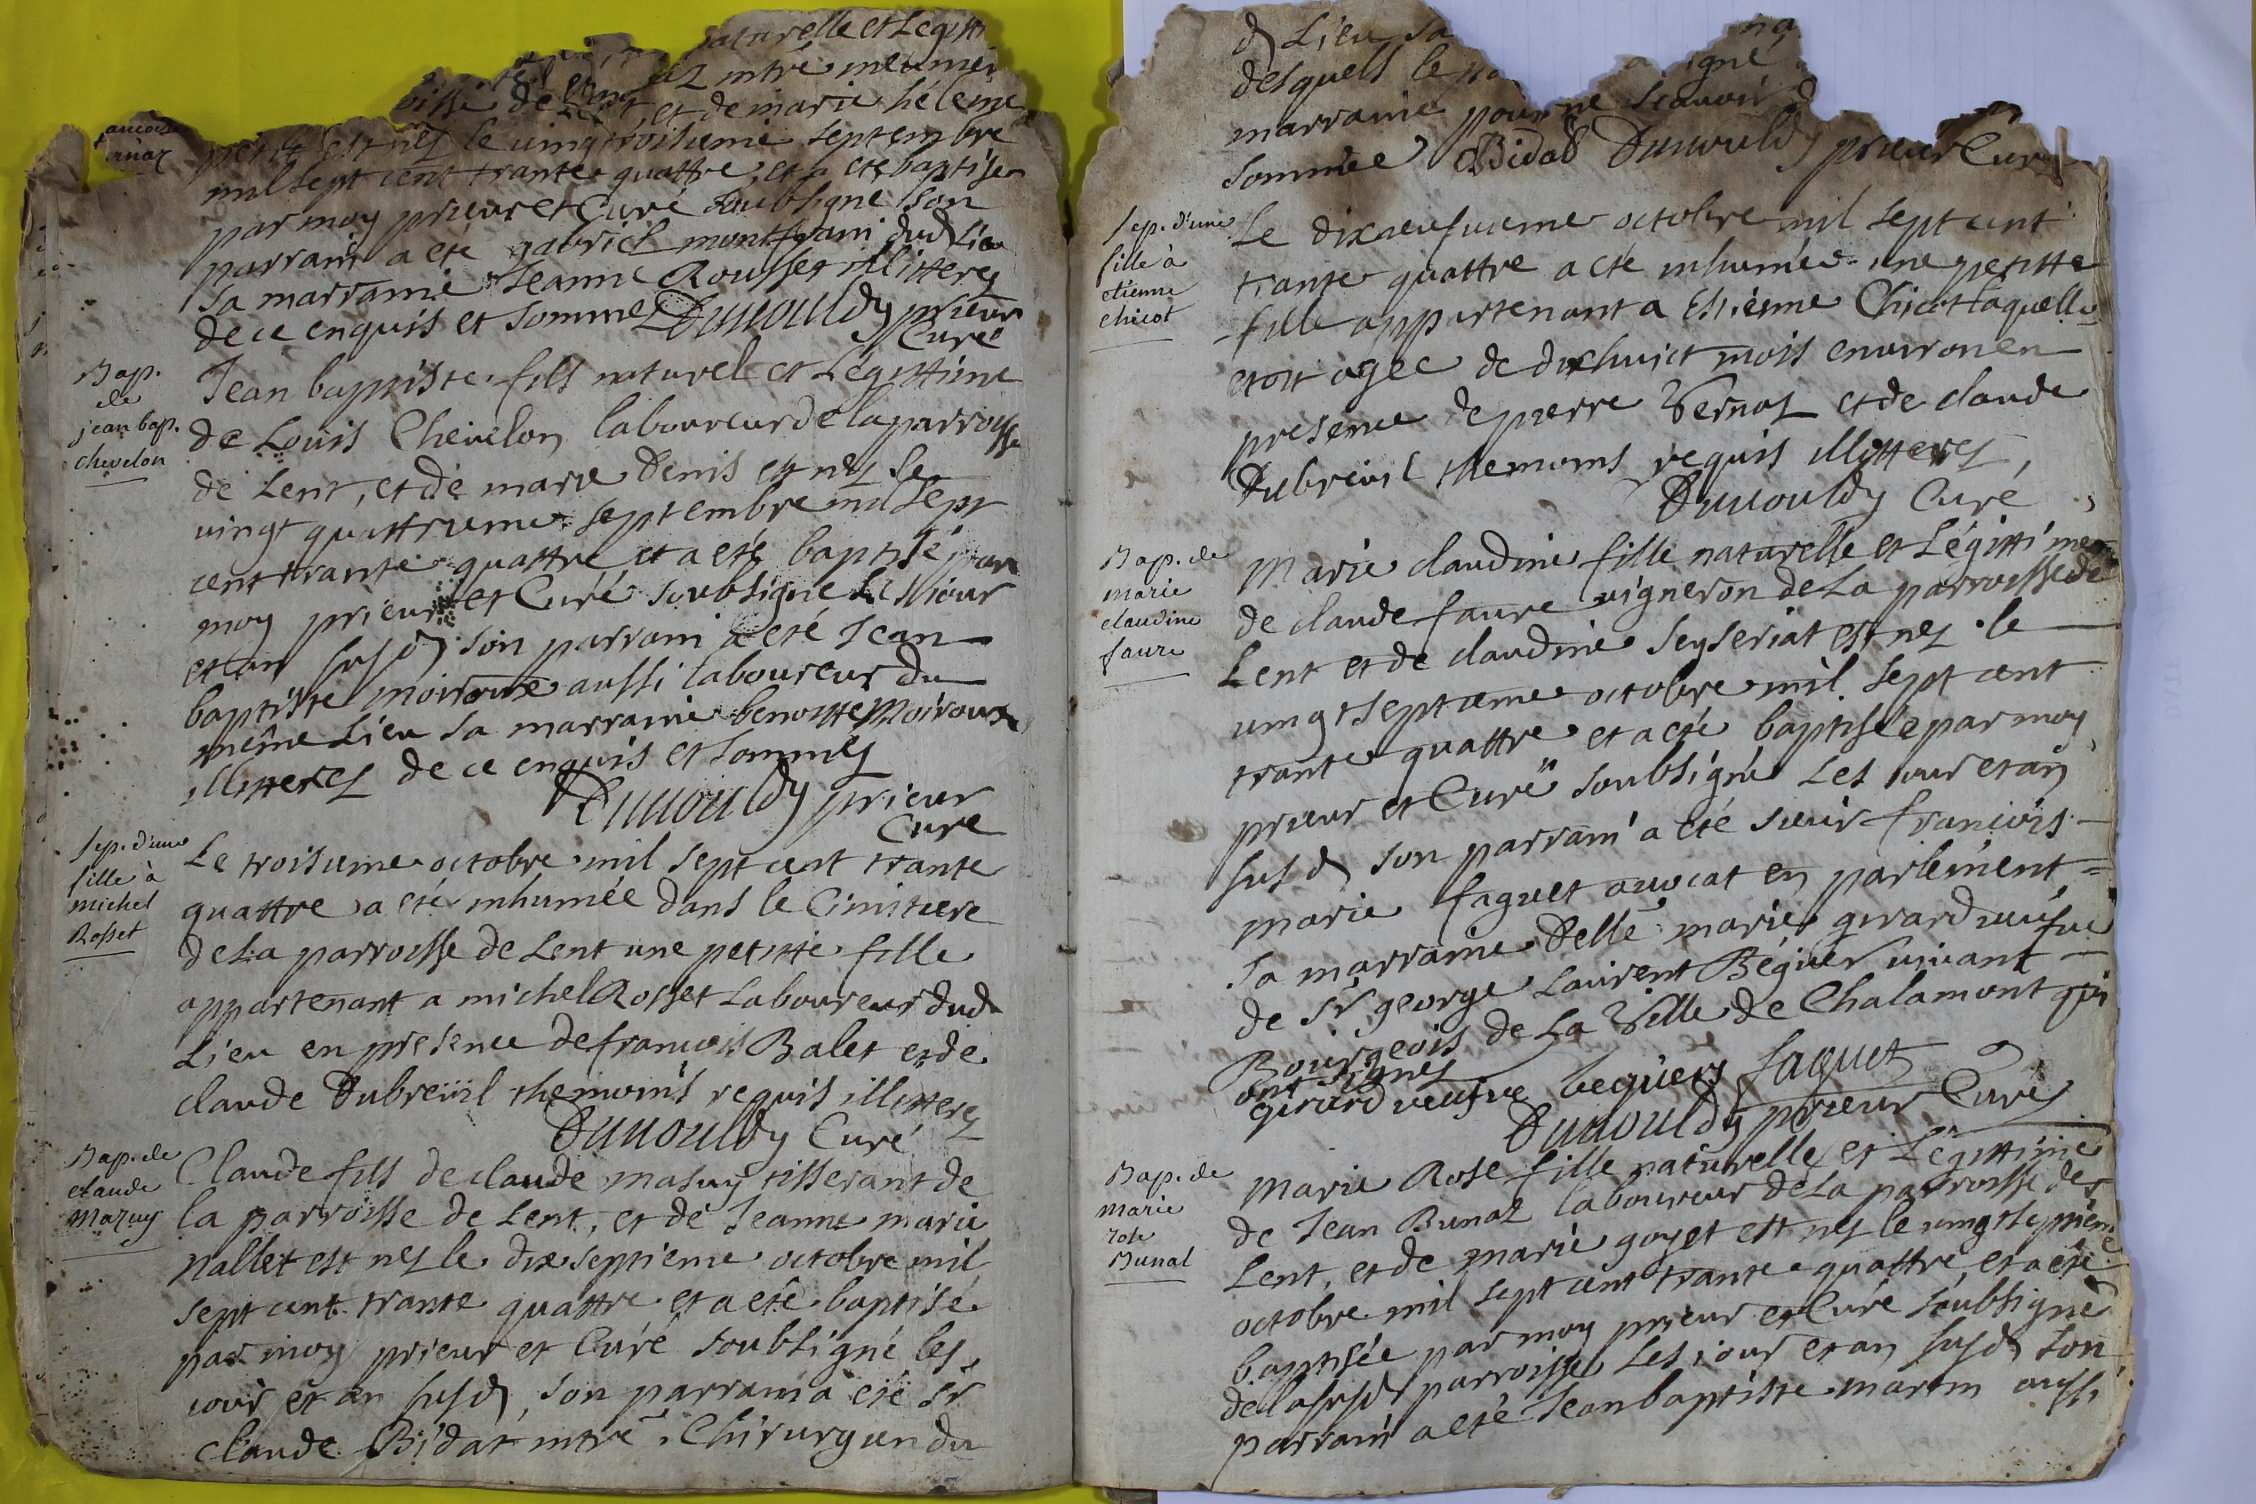 naturelle et Legitti
mtre meunier
de Lent et de marie helene
petit est nez le vingtroisieme septembre
mil sept cent trante quattre et a eté baptisé
par moy prieur et Curé soubsigné son
parrain a eté gabriel montfrani dud Lieu
sa marraine Jeanne Rousset illitterez
de ce enquis et sommez Duuouldy prieur
Curé
Bap.
de
jean bap.
chevelon
Jean baptiste fils naturel et Légittime
de Louis Chevelon laboureur de la parroisse
de Lent, et de marie Denis est nez le
vingt quattrieme septembre mil sept
cent trante quattre et a eté baptisé par
moy prieur et Curé soubsigné les jour
et an susd son parrain a eté Jean
baptiste moiroux aussi laboureur du
même Lieu sa marraine benoitte Moiroux
illitterez de ce enquis et sommez
Duuouldy prieur
Curé
sep. d'une
fille à
michel
Rosset
Le troisieme octobre mil sept cent trante
quattre a eté inhumée dans le Cimitiere
de La parroisse de Lent une petitte fille
appartenant a michel Rosset Laboureur dud
Lieu en presence de francois Balet et de
claude Dubreuil themoins requis illitterez
Duuouldy Curé
Bap. de
claude
mazuy
Claude fils de claude masuy tisserant de
la parroisse de Lent, et de Jeanne marie
nallet est nez le dix septieme octobre mil
sept cent trante quattre et a eté baptisé
par moy prieur et Curé soubsigné les
jour et an susd, son parrain a eté sr
claude Bidat mtre Chirurgien du
d Lieu sa
desquels le
marraine pour ne scavoir
sommée Bidat Duuouldy prieur Curé
sep. d'une
fille à
etienne
chicot
Le dixneufvieme octobre mil sept cent
trante quattre a eté inhumée une petitte
fille appartenant a Estienne Chicot laquelle
etoit agee de dixhuict mois environ en
presence de pierre Vernoz et de claude
Dubreuil themoins requis illitterez,
Duuouldy Curé
Bap. de
marie
claudine
faure
Marie claudine fille naturelle et Légittime
de claude faure vigneron de La parroisse de
Lent et de claudine seyseriat est nez le
vingtseptieme octobre mil sept cent
trante quattre et a eté baptisée par moy
prieur et Curé soubsigné Les jour et an
susd son parrain a eté sieur francois
marie faguet avocat en parlement
sa marraine Delle marie girard veufve
de sr george Laurent Béguer vivant
Bourgeois de La Ville de Chalamont qui
ont signez
girard veufve beguers faguet
Duuouldy prieur Curé
Bap. de
marie
rose
Bunal
Marie Rose fille naturelle et Légittime
de Jean Bunaz laboureur de La parroisse de
Lent, et de marie goyet est nez le vingtseptieme
octobre mil sept cent trante quattre, et a eté
baptisée par moy prieur et Curé soubsigné
de la susd parroisse Les jour et an susd son
parrain a eté Jean baptiste martin aussi